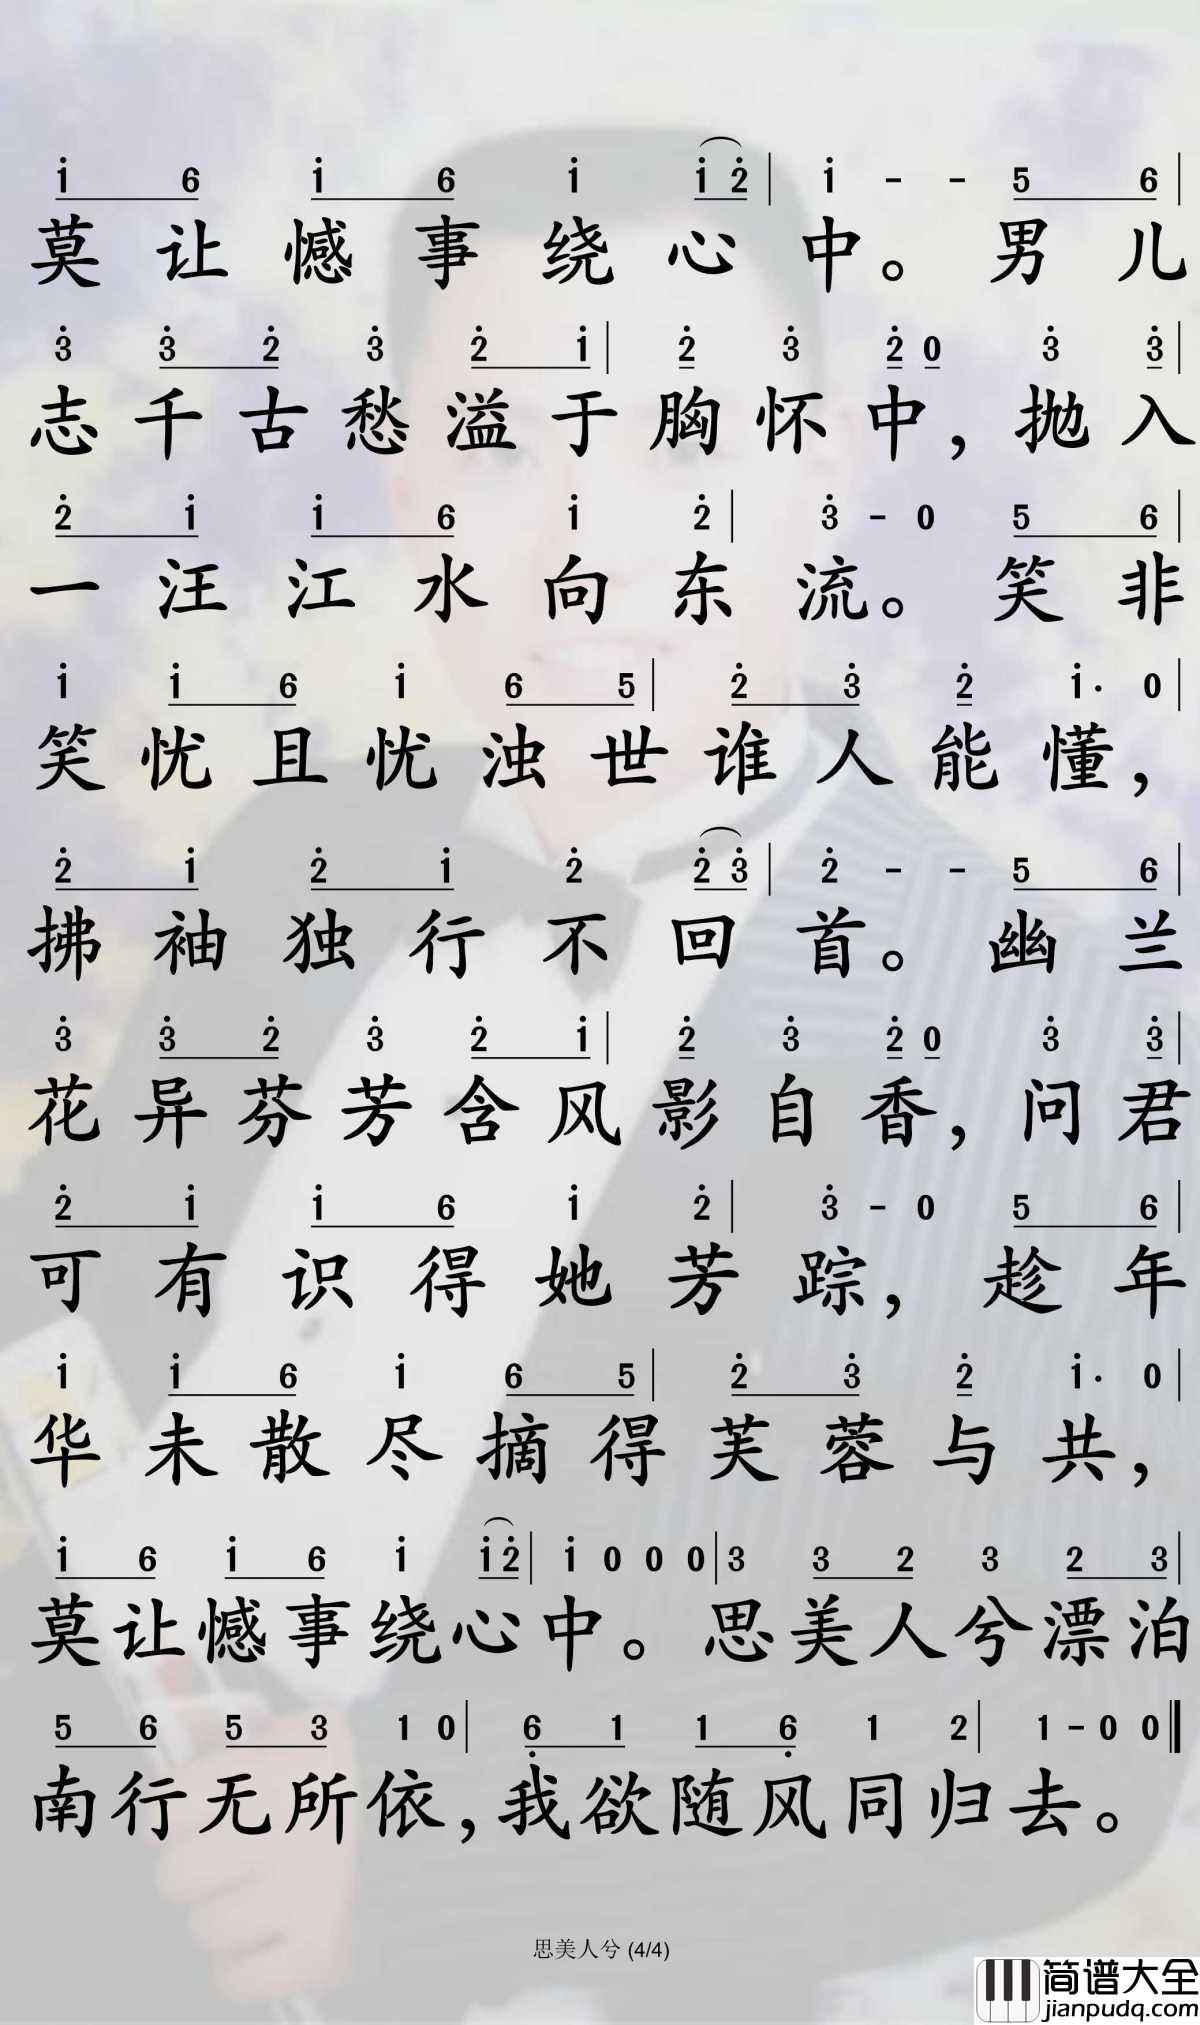 1̇ 6 1̇ 6 1̇ 1̇ 2̇ | 1̇ - - 5 6 |
莫让憾事绕心中。男儿
3̇ 3̇ 2̇ 3̇ 2̇ 1̇ | 2̇ 3̇ 2̇ 0 3̇ 3̇ |
志千古愁溢于胸怀中，抛入
2̇ 1̇ 1̇ 6 1̇ 2̇ | 3̇ - 0 5 6 |
一汪江水向东流。笑非
1̇ 1̇ 6 1̇ 6 5 | 2̇ 3̇ 2̇ 1̇· 0 |
笑忧且忧浊世谁人能懂，
2̇ 1̇ 2̇ 1̇ 2̇ 2̇ 3̇ | 2̇ - - 5 6 |
拂袖独行不回首。幽兰
3̇ 3̇ 2̇ 3̇ 2̇ 1̇ | 2̇ 3̇ 2̇ 0 3̇ 3̇ |
花异芬芳含风影自香，问君
2̇ 1̇ 1̇ 6 1̇ 2̇ | 3̇ - 0 5 6 |
可有识得她芳踪，趁年
1̇ 1̇ 6 1̇ 6 5 | 2̇ 3̇ 2̇ 1̇· 0 |
华未散尽摘得芙蓉与共，
1̇ 6 1̇ 6 1̇ 1̇ 2̇ | 1̇ 0 0 0 | 3 3 2 3 2 3 |
莫让憾事绕心中。思美人兮漂泊
5 6 5 3 1 0 | 6̣ 1 1 6̣ 1 2 | 1 - 0 0 ‖
南行无所依，我欲随风同归去。
思美人兮 (4/4)
简谱大全
jianpudq.com